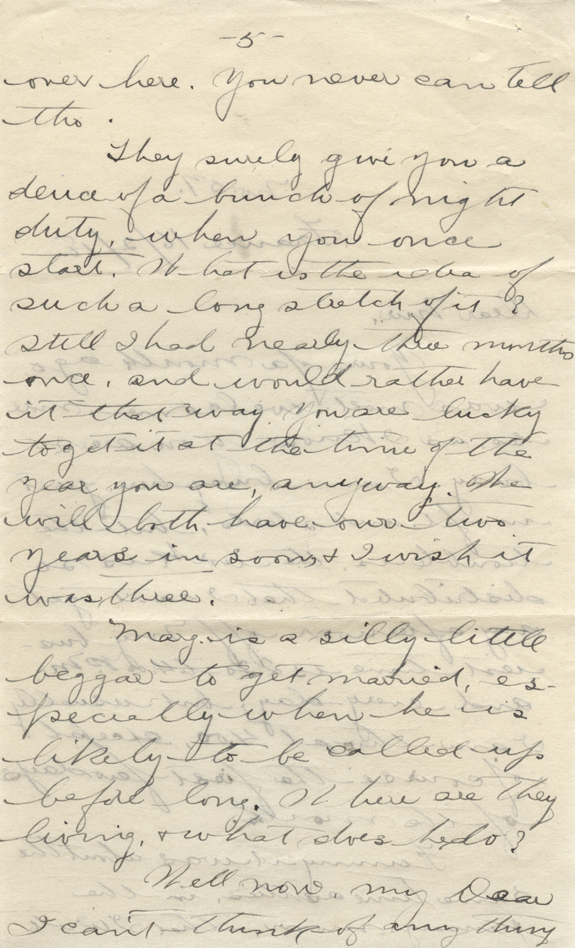 -5-
over here. You never can tell
tho.
They surely give you a
deuce of a bunch of night
duty, - when you once
start. What is the idea of
such a long stretch of it?
Still I had nearly three months
once, and would rather have
it that way. You are lucky
to get it at the time of the
year you are, anyway. We
will both have our two
years in soon & I wish it
was three.
Marg. is a silly little
beggar to get married, es-
pecially when he is
likely to be called up
before long. Where are they
living, & what does he do?
Well now my Dear
I can't think of anything